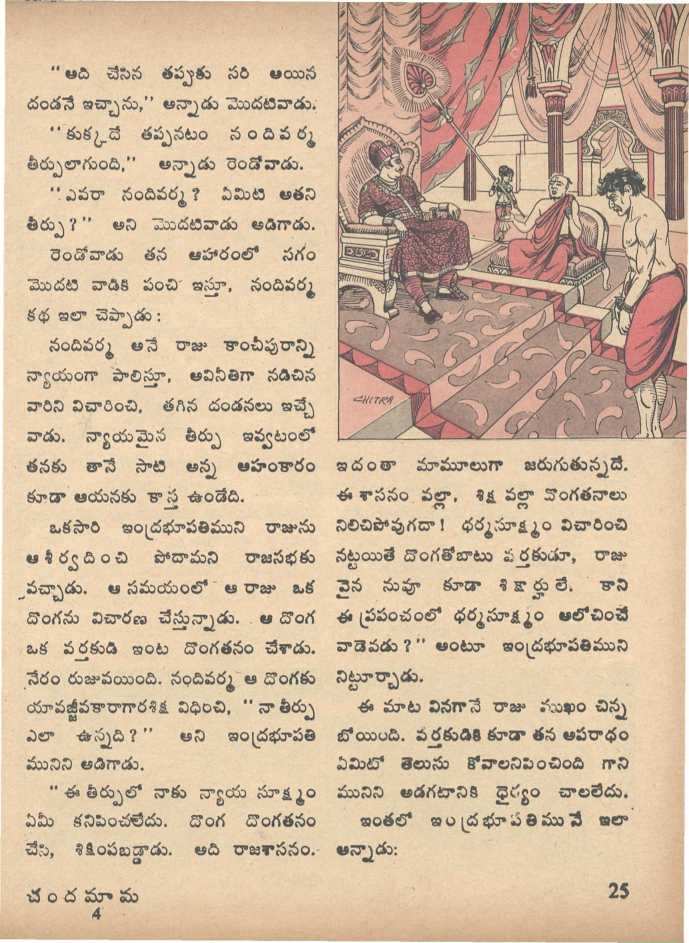 "అది చేసిన తప్పుకు సరి అయిన
దండనే ఇచ్చాను," అన్నాడు మొదటివాడు.
"కుక్కదే తప్పనటం నందివర్మ
తీర్పులాగుంది," అన్నాడు రెండోవాడు.
"ఎవరా నందివర్మ? ఏమిటి అతని
తీర్పు?" అని మొదటివాడు అడిగాడు.
రెండోవాడు తన ఆహారంలో సగం
మొదటి వాడికి పంచి ఇస్తూ, నందివర్మ
కథ ఇలా చెప్పాడు:
నందివర్మ అనే రాజు కాంచీపురాన్ని
న్యాయంగా పాలిస్తూ, అవినీతిగా నడిచిన
వారిని విచారించి, తగిన దండనలు ఇచ్చే
వాడు. న్యాయమైన తీర్పు ఇవ్వటంలో
తనకు తానే సాటి అన్న అహంకారం
కూడా ఆయనకు కాస్త ఉండేది.
ఒకసారి ఇంద్రభూపతిముని రాజును
ఆశీర్వదించి పోదామని రాజసభకు
వచ్చాడు. ఆ సమయంలో ఆ రాజు ఒక
దొంగను విచారణ చేస్తున్నాడు. ఆ దొంగ
ఒక వర్తకుడి ఇంట దొంగతనం చేశాడు.
నేరం రుజువయింది. నందివర్మ ఆ దొంగకు
యావజ్జీవకారాగారశిక్ష విధించి, "నా తీర్పు
ఎలా ఉన్నది?" అని ఇంద్రభూపతి
మునిని అడిగాడు.
"ఈ తీర్పులో నాకు న్యాయ సూక్ష్మం
ఏమీ కనిపించలేదు. దొంగ దొంగతనం
చేసి, శిక్షింపబడ్డాడు. అది రాజశాసనం.
CHITRA
ఇదంతా మామూలుగా జరుగుతున్నదే.
ఈ శాసనం వల్లా, శిక్ష వల్లా దొంగతనాలు
నిలిచిపోవుగదా! ధర్మసూక్ష్మం విచారించి
నట్టయితే దొంగతోబాటు వర్తకుడూ, రాజు
వైన నువూ కూడా శిక్షార్హులే. కాని
ఈ ప్రపంచంలో ధర్మసూక్ష్మం ఆలోచించే
వాడెవడు?" అంటూ ఇంద్రభూపతిముని
నిట్టూర్చాడు.
ఈ మాట వినగానే రాజు ముఖం చిన్న
బోయింది. వర్తకుడికి కూడా తన అపరాధం
ఏమిటో తెలుసు కోవాలనిపించింది గాని
మునిని అడగటానికి ధైర్యం చాలలేదు.
ఇంతలో ఇంద్రభూపతిమునే ఇలా
అన్నాడు:
చందమామ
4
25